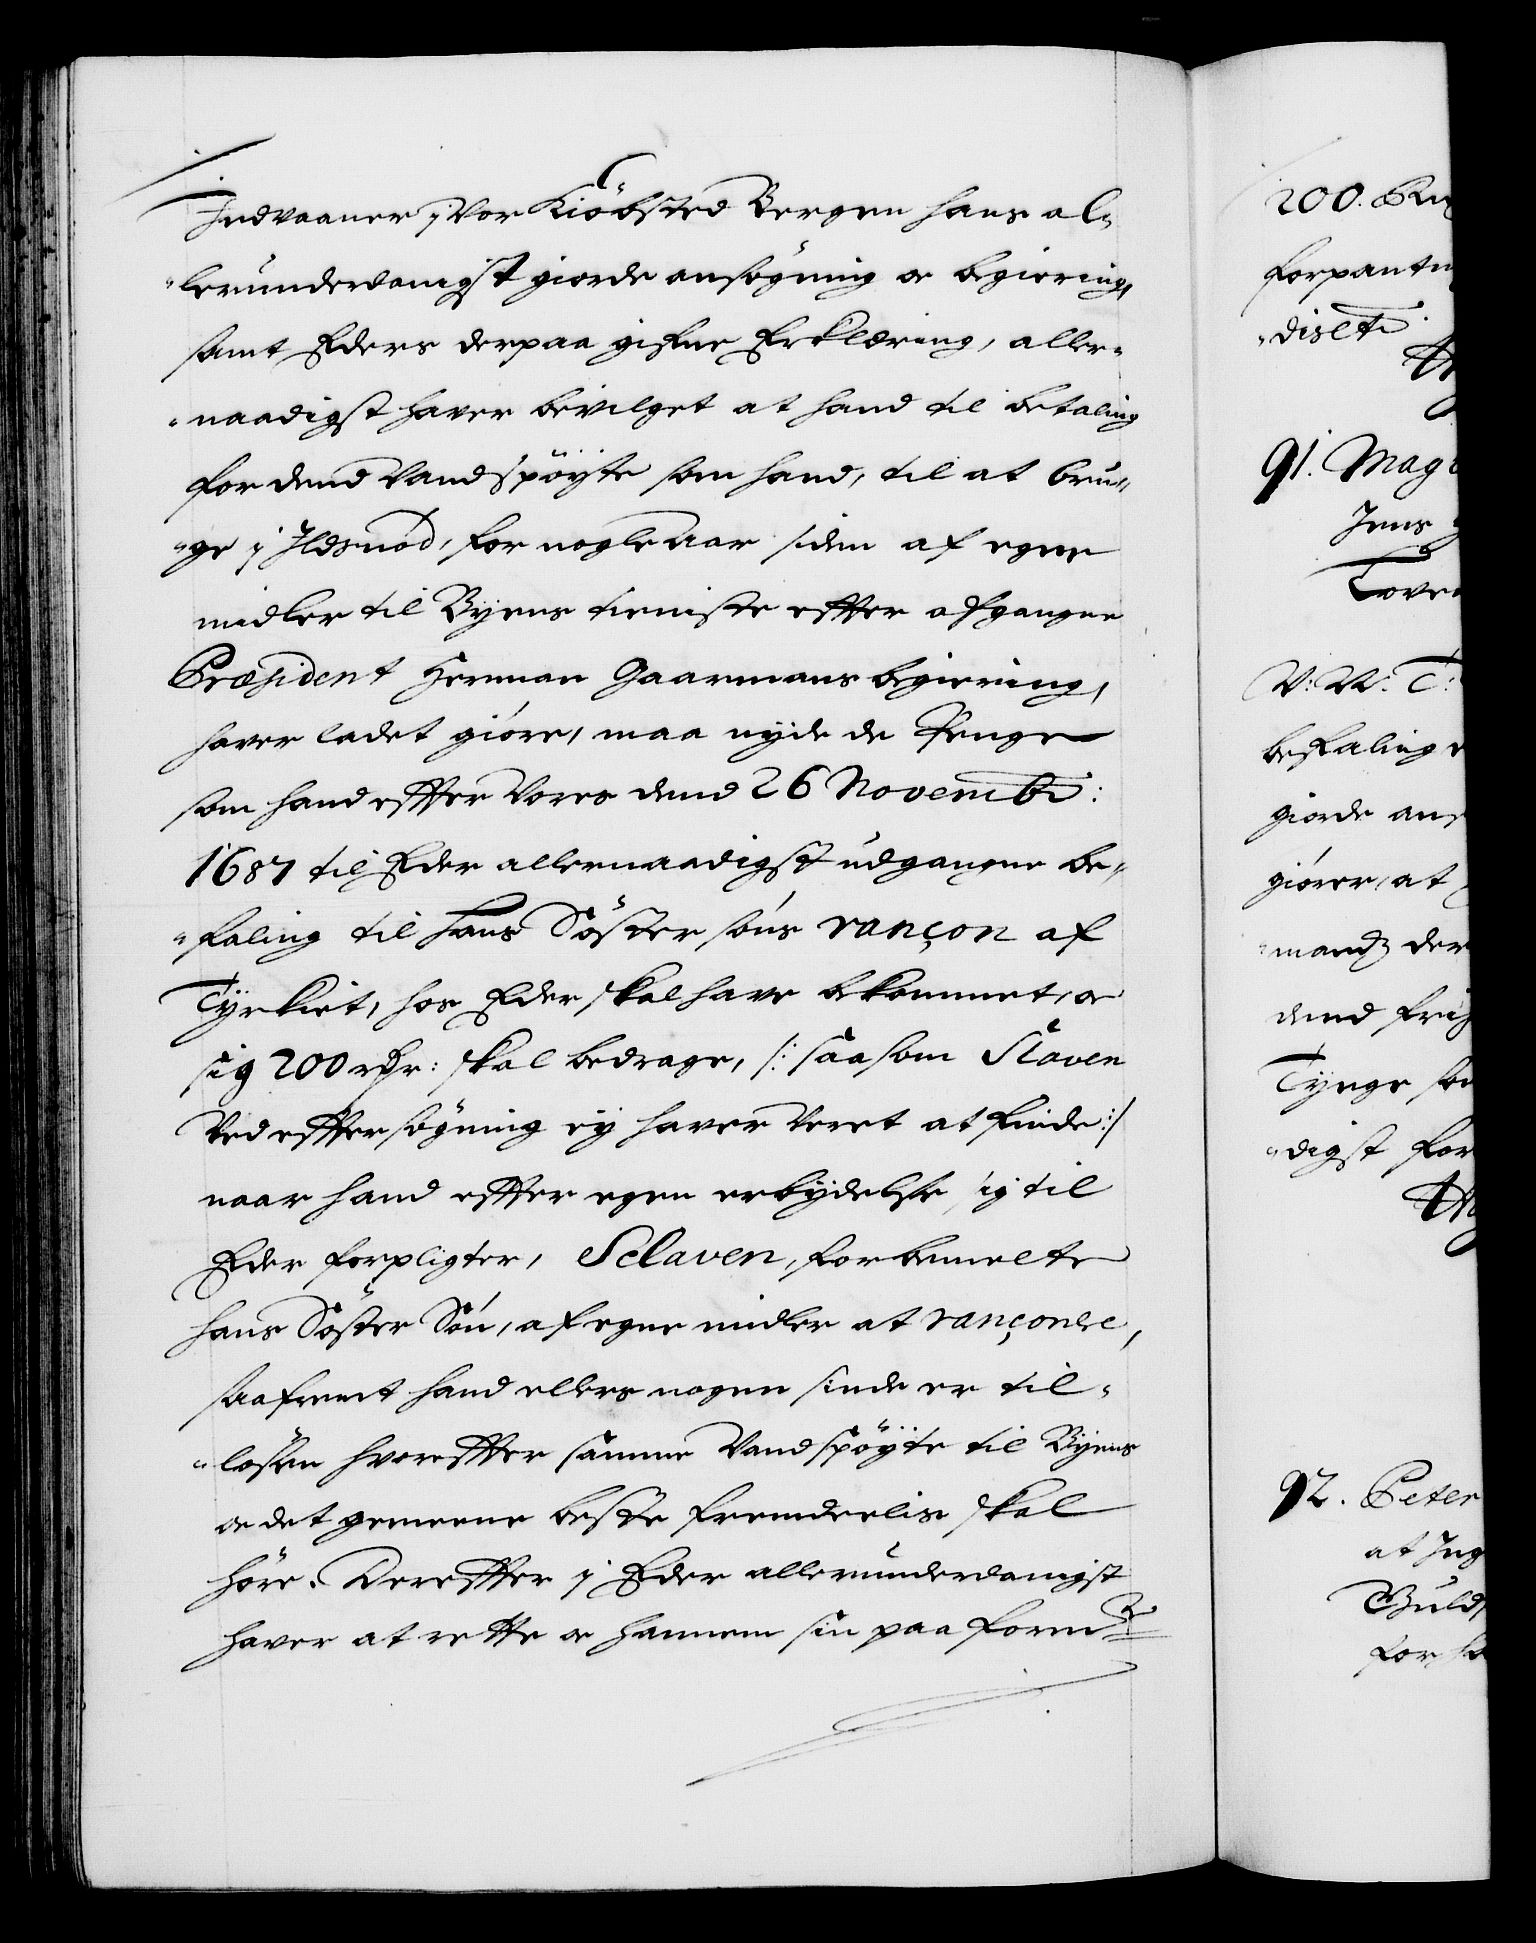 Indvaaner j Vor Kiöbsted Bergen hans al-
lerunderdanigst giorde ansögning oc begiering,
samt Eders derpaa gifne Erklæring, aller-
naadigst haver bevilget at hand til betaling
for dend Vandspöyte som hand, til at bru-
ge j Ildsnöd, for nogle aar siden af egne
midler til Byens tieniste effter afgangne
Præsident Herman Gaarmans begiering,
haver ladet giöre, maa nyde de Penge
som hand effter Vores dend 26 Novembr:
1687 til Eder allernaadigst udgangne be-
faling til hans Söster söns rançon af
Tyrkiet, hos Eder skal have bekommet, oc
sig 200 rdr: skal bedrage, /: saasom Slaven
Ved effter sögning ey haver Veret at finde :/
naar hand effter egen erbydelse sig til
Eder forpligter, Sclaven, forbemelte
hans Söster Sön, af egne midler at rançonere,
saafremt hand ellers nogen sinde er til-
lösen hvoreffter samme Vandspöyte til Byens
oc det gemeene beste fremdeelis skal
höre. Dereffter j Eder allerunderdanigst
haver at rette oc hannem sin paa form
200.
forpantn
disete
91. Mag
Jens
Tove
V: W: T:
befaling
giorde ans
giörer, at
mandz der
dend frj
Tynge so
digst for
92. Peter
at Ing
Guld
for